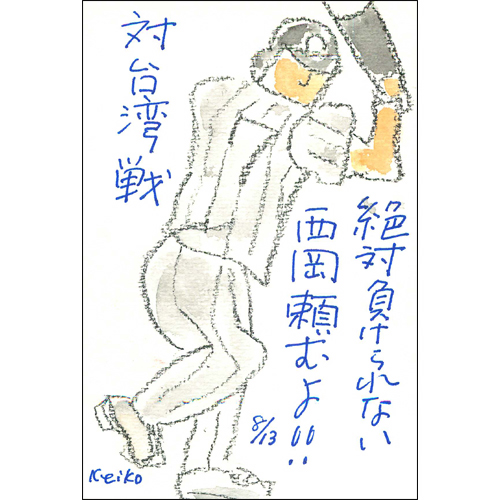 対台湾戦
絶対負けられない
西岡頼むよ!!
8/13
Keiko